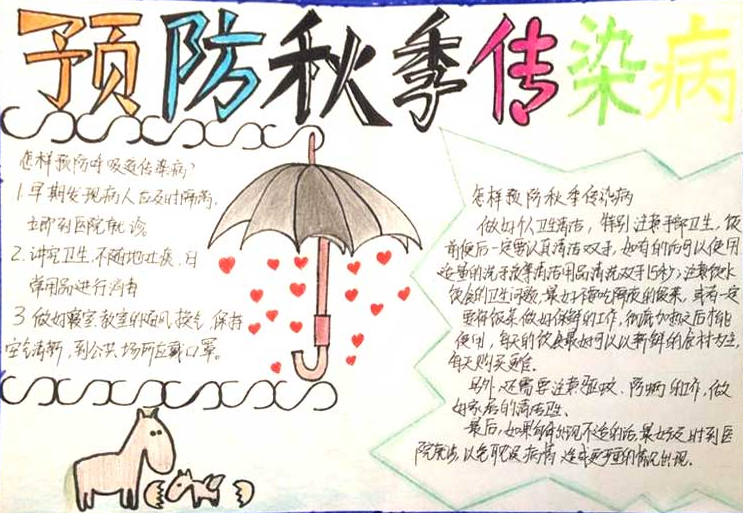 预防秋季传染病
怎样预防呼吸道传染病?
1.早期发现病人应及时隔离,
立即到医院就诊。
2.讲究卫生,不随地吐痰,日
常用品进行消毒
3 做好寝室、教室的通风换气,保持
空气清新,到公共场所应戴口罩。
怎样预防秋季传染病
做好个人卫生清洁,特别注意手部卫生,饭
前便后一定要认真清洁双手,如有的话可以使用
适量的洗手液等清洁用品清洗双手15秒;注意饮水
饮食的卫生问题,最好不吃隔夜的饭菜,或者一定
要将饭菜做好保鲜的工作,彻底加热之后才能
使用,每天的饮食最好可以以新鲜的食材为主,
每天购买更难。
另外还需要注意驱蚊、防病的工作,做
好家居的清洁卫生。
最后,如果身体出现不适的话,最好及时到医
院就诊,以免耽误病情,造成更严重的情况出现。